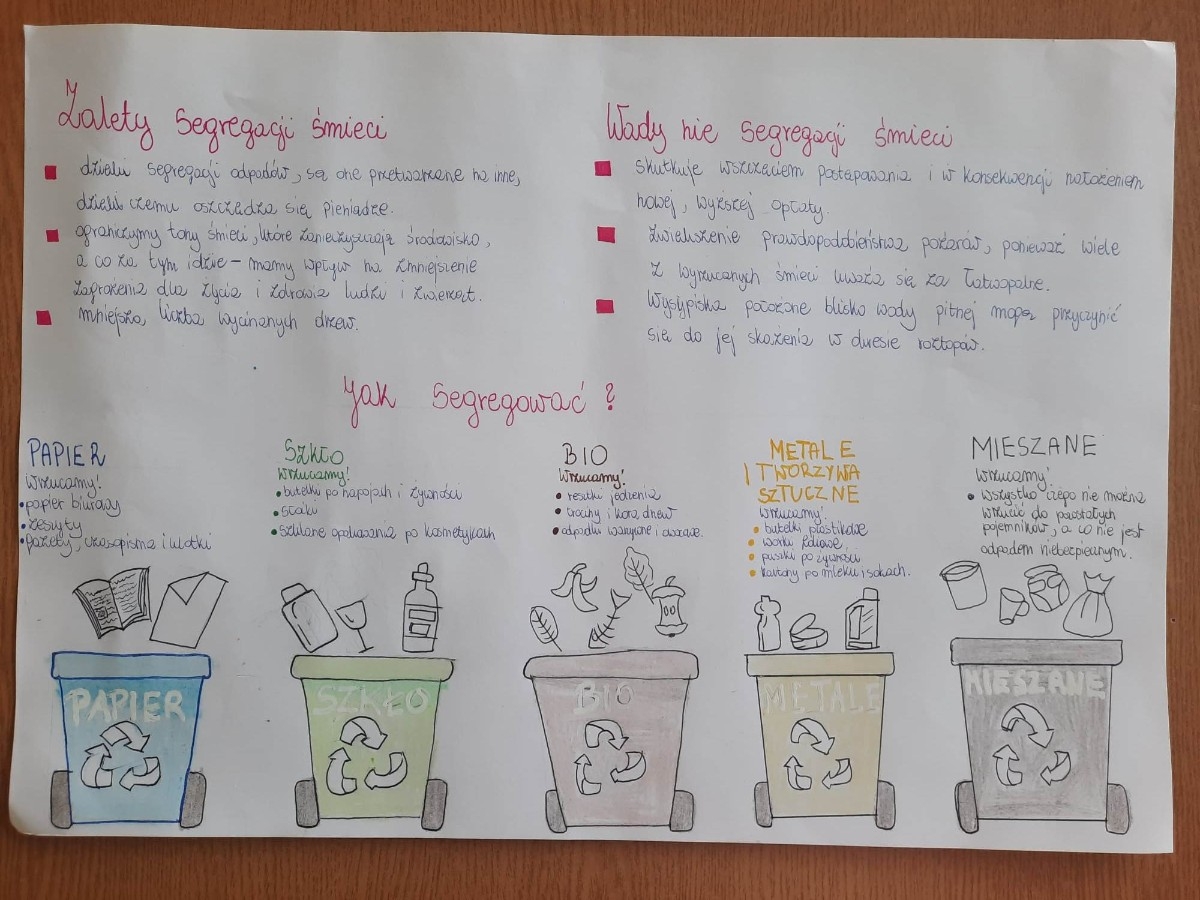 Zalety segregacji śmieci
dzięki segregacji odpadów, są one przetwarzane na inne,
dzięki czemu oszczędza się pieniądze.
ograniczymy tony śmieci, które zanieczyszczają środowisko,
a co za tym idzie - mamy wpływ na zmniejszenie
zagrożenia dla życia i zdrowia ludzi i zwierząt.
mniejsza, liczba wycinanych drzew.
Wady nie segregacji śmieci
skutkuje wszczęciem postępowania i w konsekwencji nałożeniem
nowej, wyższej opłaty.
zwiększenie prawdopodobieństwa pożarów, ponieważ wiele
z wyrzucanych śmieci uważa się za łatwopalne.
Wysypiska położone blisko wody pitnej mogą przyczynić
się do jej skażenia w okresie roztopów.
Jak segregować?
PAPIER
Wrzucamy!
papier biurowy
zeszyty
gazety, czasopisma i ulotki
SZKŁO
Wrzucamy!
butelki po napojach i żywności
słoiki
szklane opakowania po kosmetykach
BIO
Wrzucamy!
resztki jedzenia
trociny i kora drzew
odpadki warzywne i owocowe.
METALE
I TWORZYWA
SZTUCZNE
Wrzucamy!
butelki plastikowe
worki foliowe
puszki po żywności
kartony po mleku i sokach.
MIESZANE
Wrzucamy!
wszystko czego nie można
wrzucić do pozostałych
pojemników, a co nie jest
odpadem niebezpiecznym.
PAPIER
SZKŁO
BIO
METALE
MIESZANE